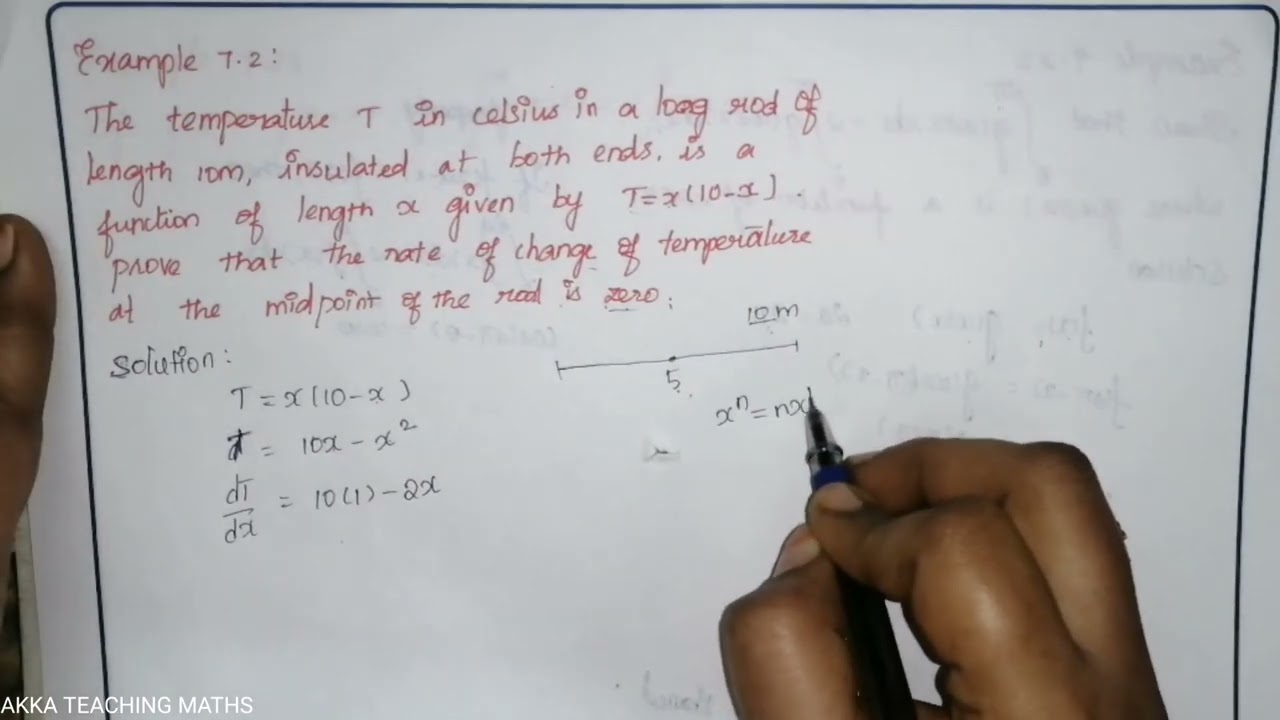 Example 7.2:
The temperature T in celsius in a long rod of
length 10m, insulated at both ends, is a
function of length x given by T=x(10-x).
prove that the rate of change of temperature
at the midpoint of the rod is zero.
10m
5
Solution:
T = x(10-x)
T = 10x - x²
xⁿ = nx
dT/dx = 10(1) - 2x
AKKA TEACHING MATHS